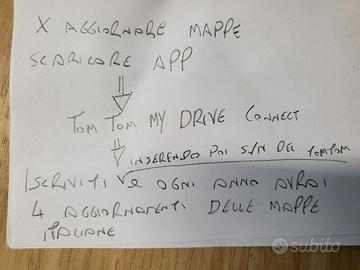 X AGGIORNARE MAPPE
SCARICARE APP
TOM TOM MY DRIVE CONNECT
INSERENDO POI S/N DEL TOMTOM
ISCRIVITI E OGNI ANNO AVRAI
4 AGGIORNAMENTI DELLE MAPPE
ITALIANE
subito